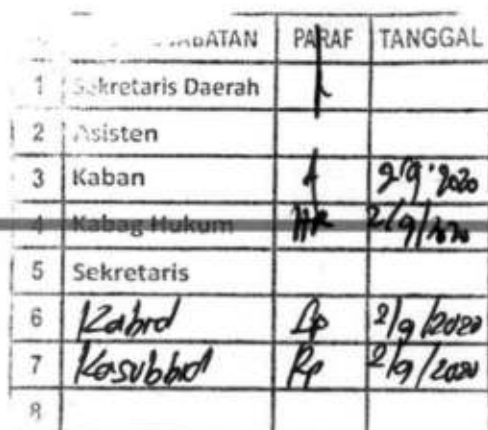 JABATAN PARAF TANGGAL
1 Sekretaris Daerah
2 Asisten
3 Kaban 2/9/2020
4 Kabag Hukum 2/9/2020
5 Sekretaris
6 Kabid 2/9/2020
7 Kasubbid 2/9/2020
8